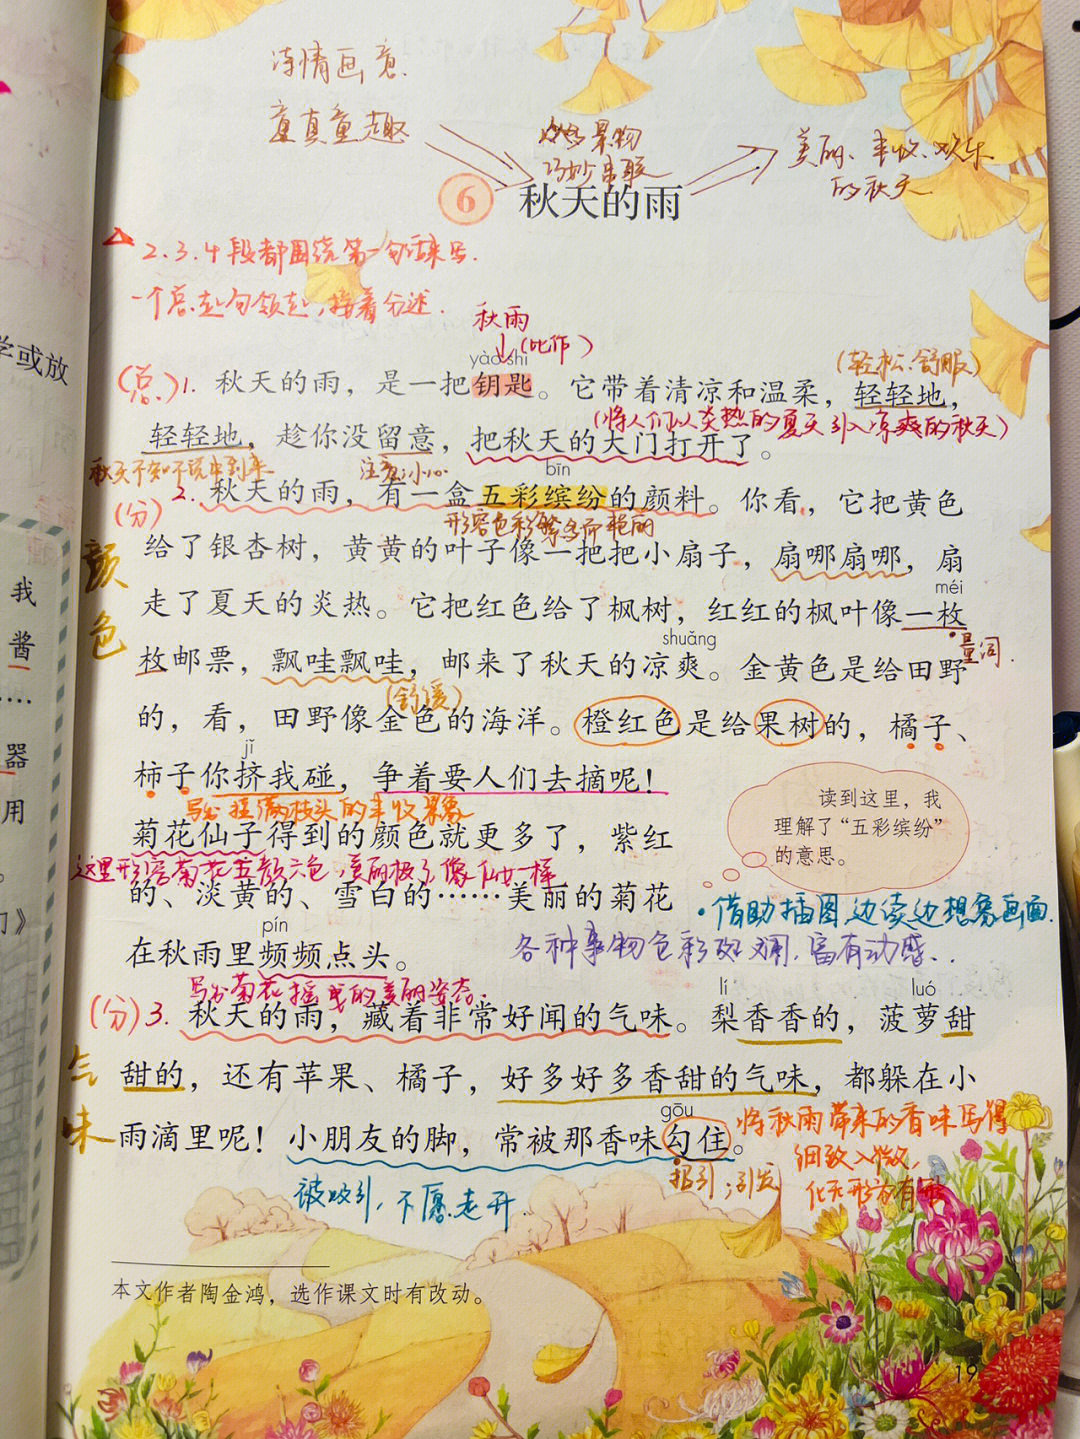 诗情画意
童真童趣
众多果物
巧妙串联
美丽、丰收、欢乐
的秋天
6 秋天的雨
2.3.4段都围绕第一句话来写.
一个总起句领起,接着分述.
秋雨
(比作)
yào shi
(轻松、舒服)
(总)1. 秋天的雨，是一把钥匙。它带着清凉和温柔，轻轻地，
(将人们从炎热的夏天引入凉爽的秋天)
轻轻地，趁你没留意，把秋天的大门打开了。
秋天不知不觉中到来
注意;小心
bīn
(分)
2. 秋天的雨，有一盒五彩缤纷的颜料。你看，它把黄色
形容色彩繁多而艳丽
颜色
给了银杏树，黄黄的叶子像一把把小扇子，扇哪扇哪，扇
méi
走了夏天的炎热。它把红色给了枫树，红红的枫叶像一枚
shuǎng
量词.
枚邮票，飘哇飘哇，邮来了秋天的凉爽。金黄色是给田野
(舒缓)
的，看，田野像金色的海洋。橙红色是给果树的，橘子、
jǐ
柿子你挤我碰，争着要人们去摘呢！
写出挂满枝头的丰收景象
菊花仙子得到的颜色就更多了，紫红
这里形容菊花五颜六色,美丽极了像仙女一样
的、淡黄的、雪白的……美丽的菊花
pín
在秋雨里频频点头。
写出菊花摇曳的美丽姿态.
读到这里，我
理解了“五彩缤纷”
的意思。
·借助插图,边读边想象画面.
各种事物色彩斑斓,富有动感.
lí
luó
(分)3. 秋天的雨，藏着非常好闻的气味。梨香香的，菠萝甜
气味
甜的，还有苹果、橘子，好多好多香甜的气味，都躲在小
gōu
雨滴里呢！小朋友的脚，常被那香味勾住。
将秋雨带来的香味写得
细致入微,
化无形为有形
招引;引发
被吸引,不愿走开.
本文作者陶金鸿，选作课文时有改动。
19
学或放
我
酱
……
器
用
。
》